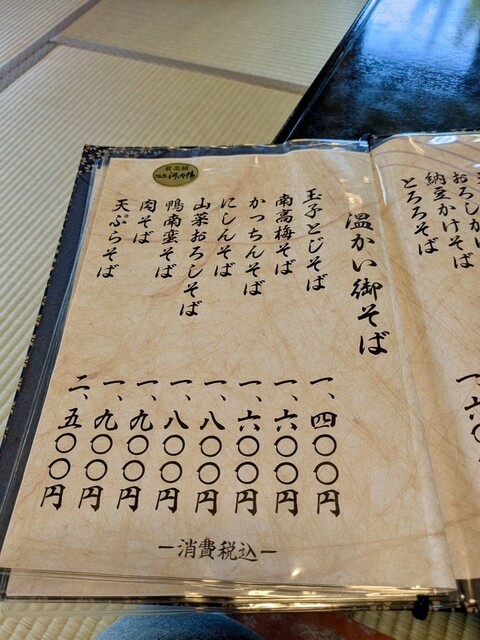 おろしかけ
納豆かけそば
とろろそば
一、六〇
温かい御そば
玉子とじそば 一、四〇〇円
南高梅そば 一、六〇〇円
かっちんそば 一、六〇〇円
にしんそば 一、八〇〇円
山菜おろしそば 一、八〇〇円
鴨南蛮そば 一、九〇〇円
肉そば 一、九〇〇円
天ぷらそば 二、五〇〇円
ー消費税込ー